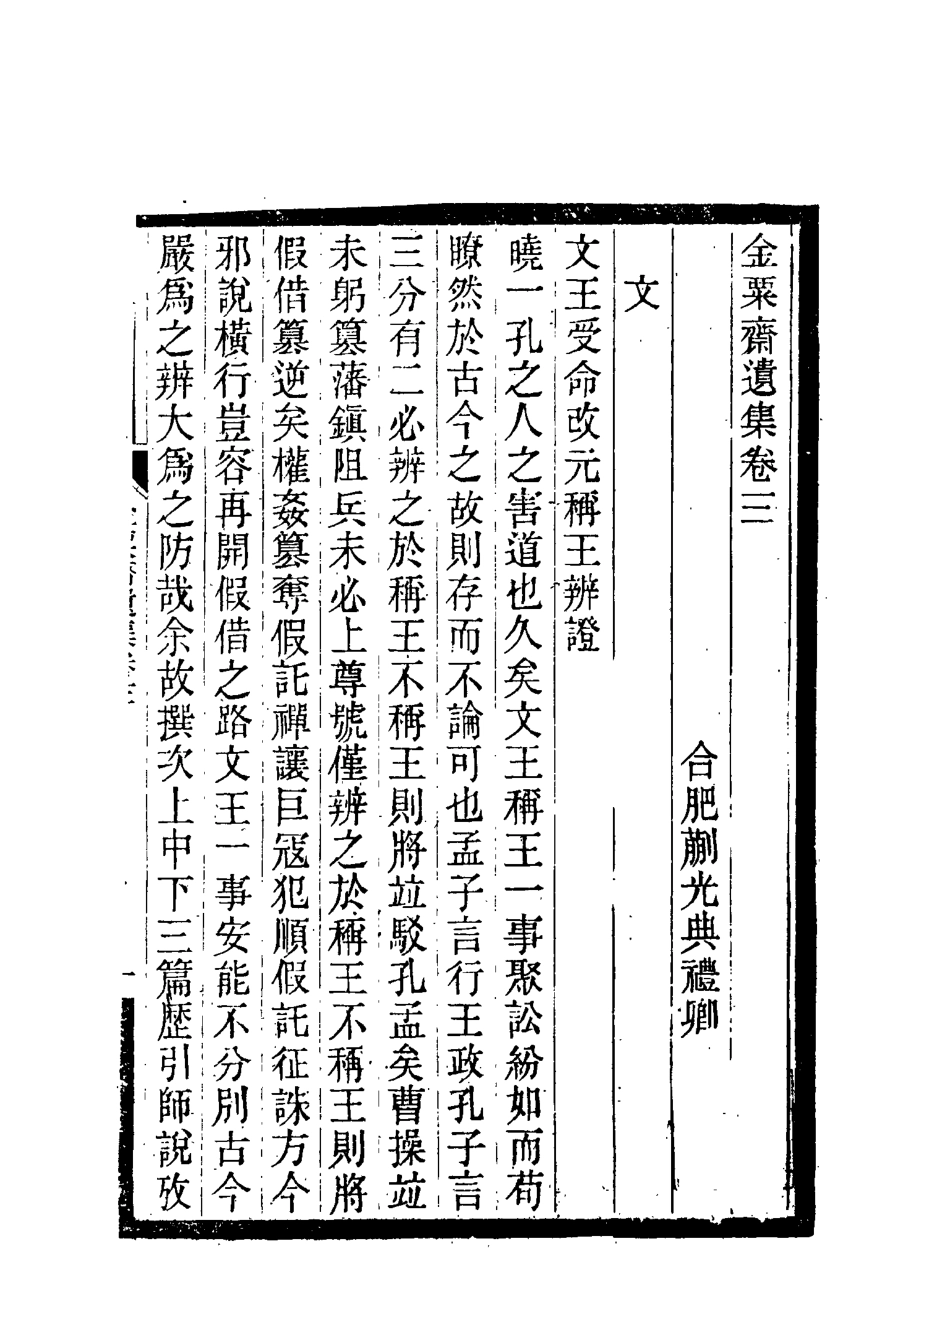 金粟齋遺集卷三
合肥蒯光典禮卿
文
文王受命改元稱王辨證
曉一孔之人之害道也久矣文王稱王一事聚訟紛如而苟
瞭然於古今之故則存而不論可也孟子言行王政孔子言
三分有二必辨之於稱王不稱王則將竝駁孔孟矣曹操竝
未躬篡藩鎮阻兵未必上尊號僅辨之於稱王不稱王則將
假借篡逆矣權姦篡奪假託禪讓巨寇犯順假託征誅方今
邪說橫行豈容再開假借之路文王一事安能不分別古今
嚴爲之辨大爲之防哉余故撰次上中下三篇歷引師說攷
一